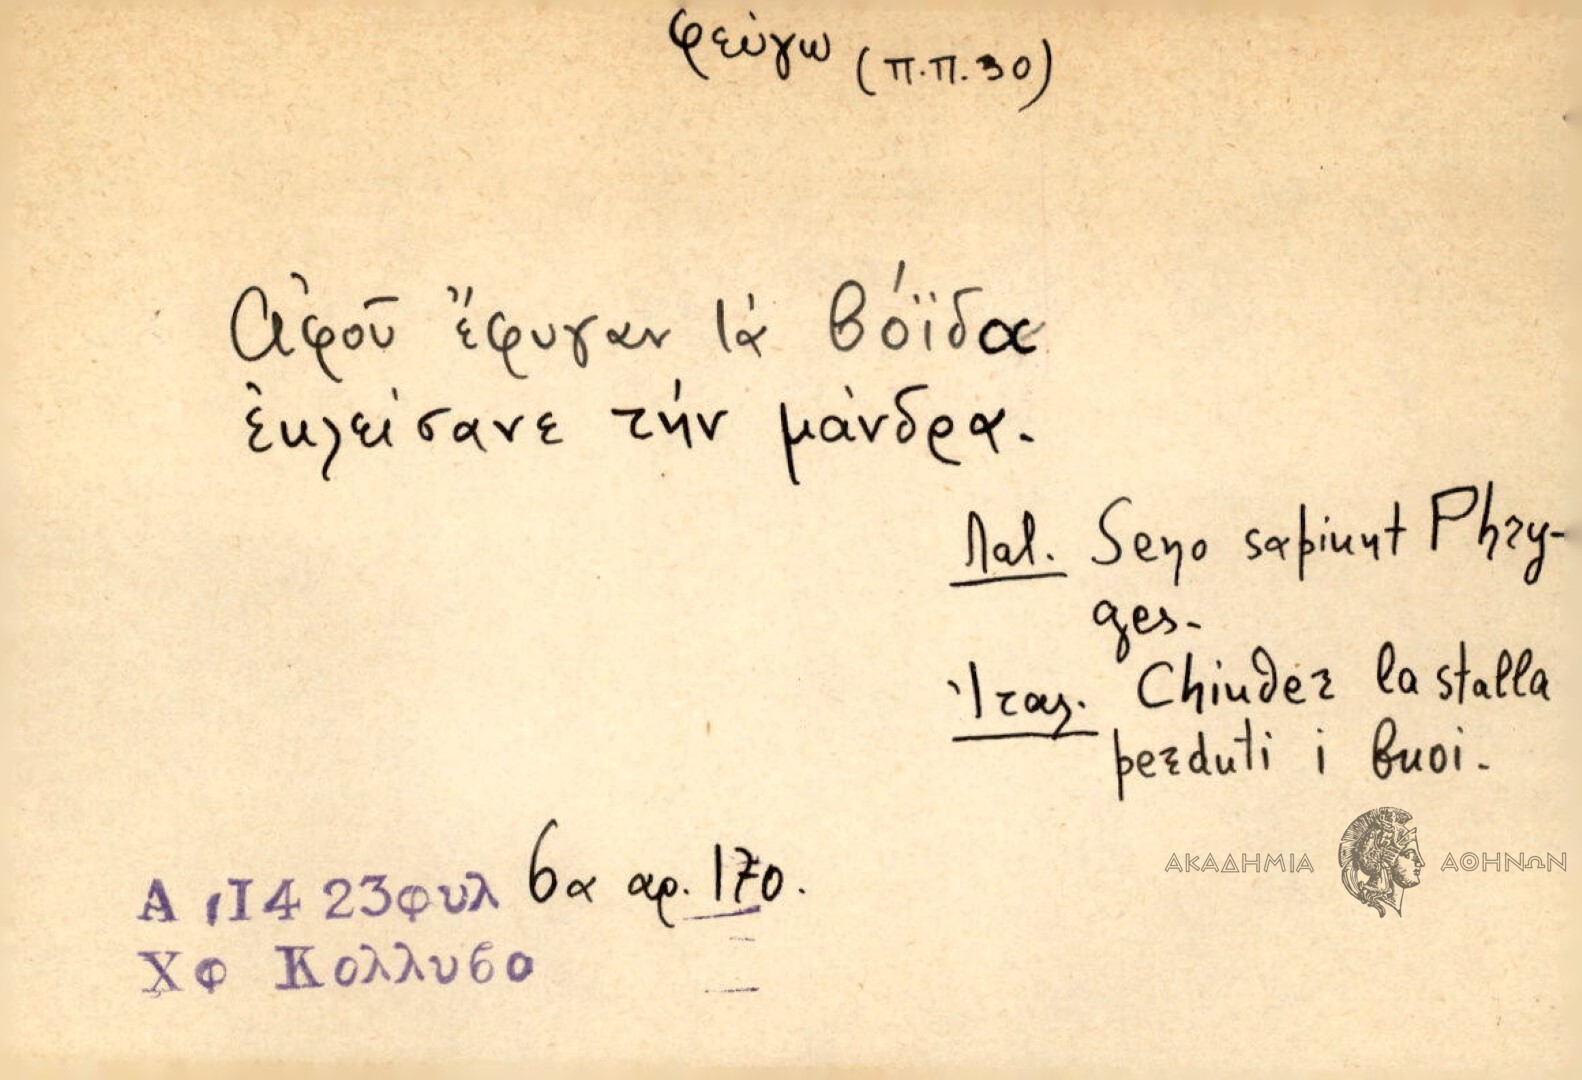 φεύγω (π.π. 30)
Ἀφοῦ ἔφυγαν τὰ βόϊδα
ἐκλείσανε τὴν μάνδρα.
Λατ. Sero sapiunt Phry-
ges.
Ἰταλ. Chiuder la stalla
perduti i buoi.
Α ,14 23φυλ 6α αρ. 170.
Χφ Κολλυβο
ΑΚΑΔΗΜΙΑ ΑΘΗΝΩΝ